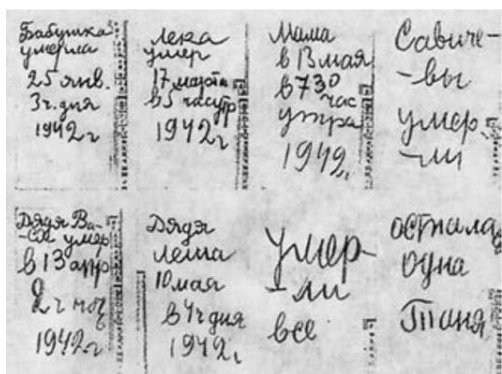 Бабушка
умерла
25 янв.
3ч. дня
1942 г
Лека
умер
17 марта
в 5 час утр
1942 г
Мама
в 13 мая
в 7 30
час
утра
1942 г
Савиче-
-вы
умер
-ли
Дядя Ва-
-ся умер
в 13 апр
2 ч ноч
1942 г
Дядя
Леша
10 мая
в 4ч дня
1942 г
умер-
-ли
все
осталась
одна
Таня